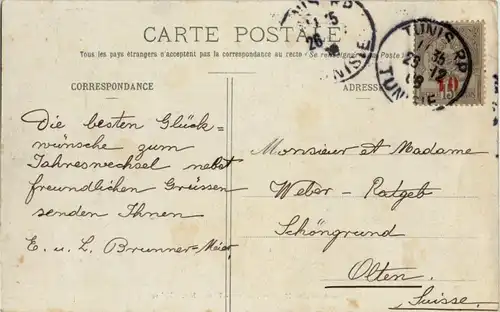 CARTE POSTALE
Tous les pays étrangers n'acceptent pas la correspondance au recto (Se renseigner au Poste)
CORRESPONDANCE
ADRESSE
TUNIS RP
TUNISIE
10
Die besten Glück-
wünsche zum
Jahreswechsel nebst
freundlichen Grüssen
senden Ihnen
E. u. L. Brunner=Meier.
Monsieur et Madame
Weber - Ratgeb
Schöngrund
Olten.
Suisse.